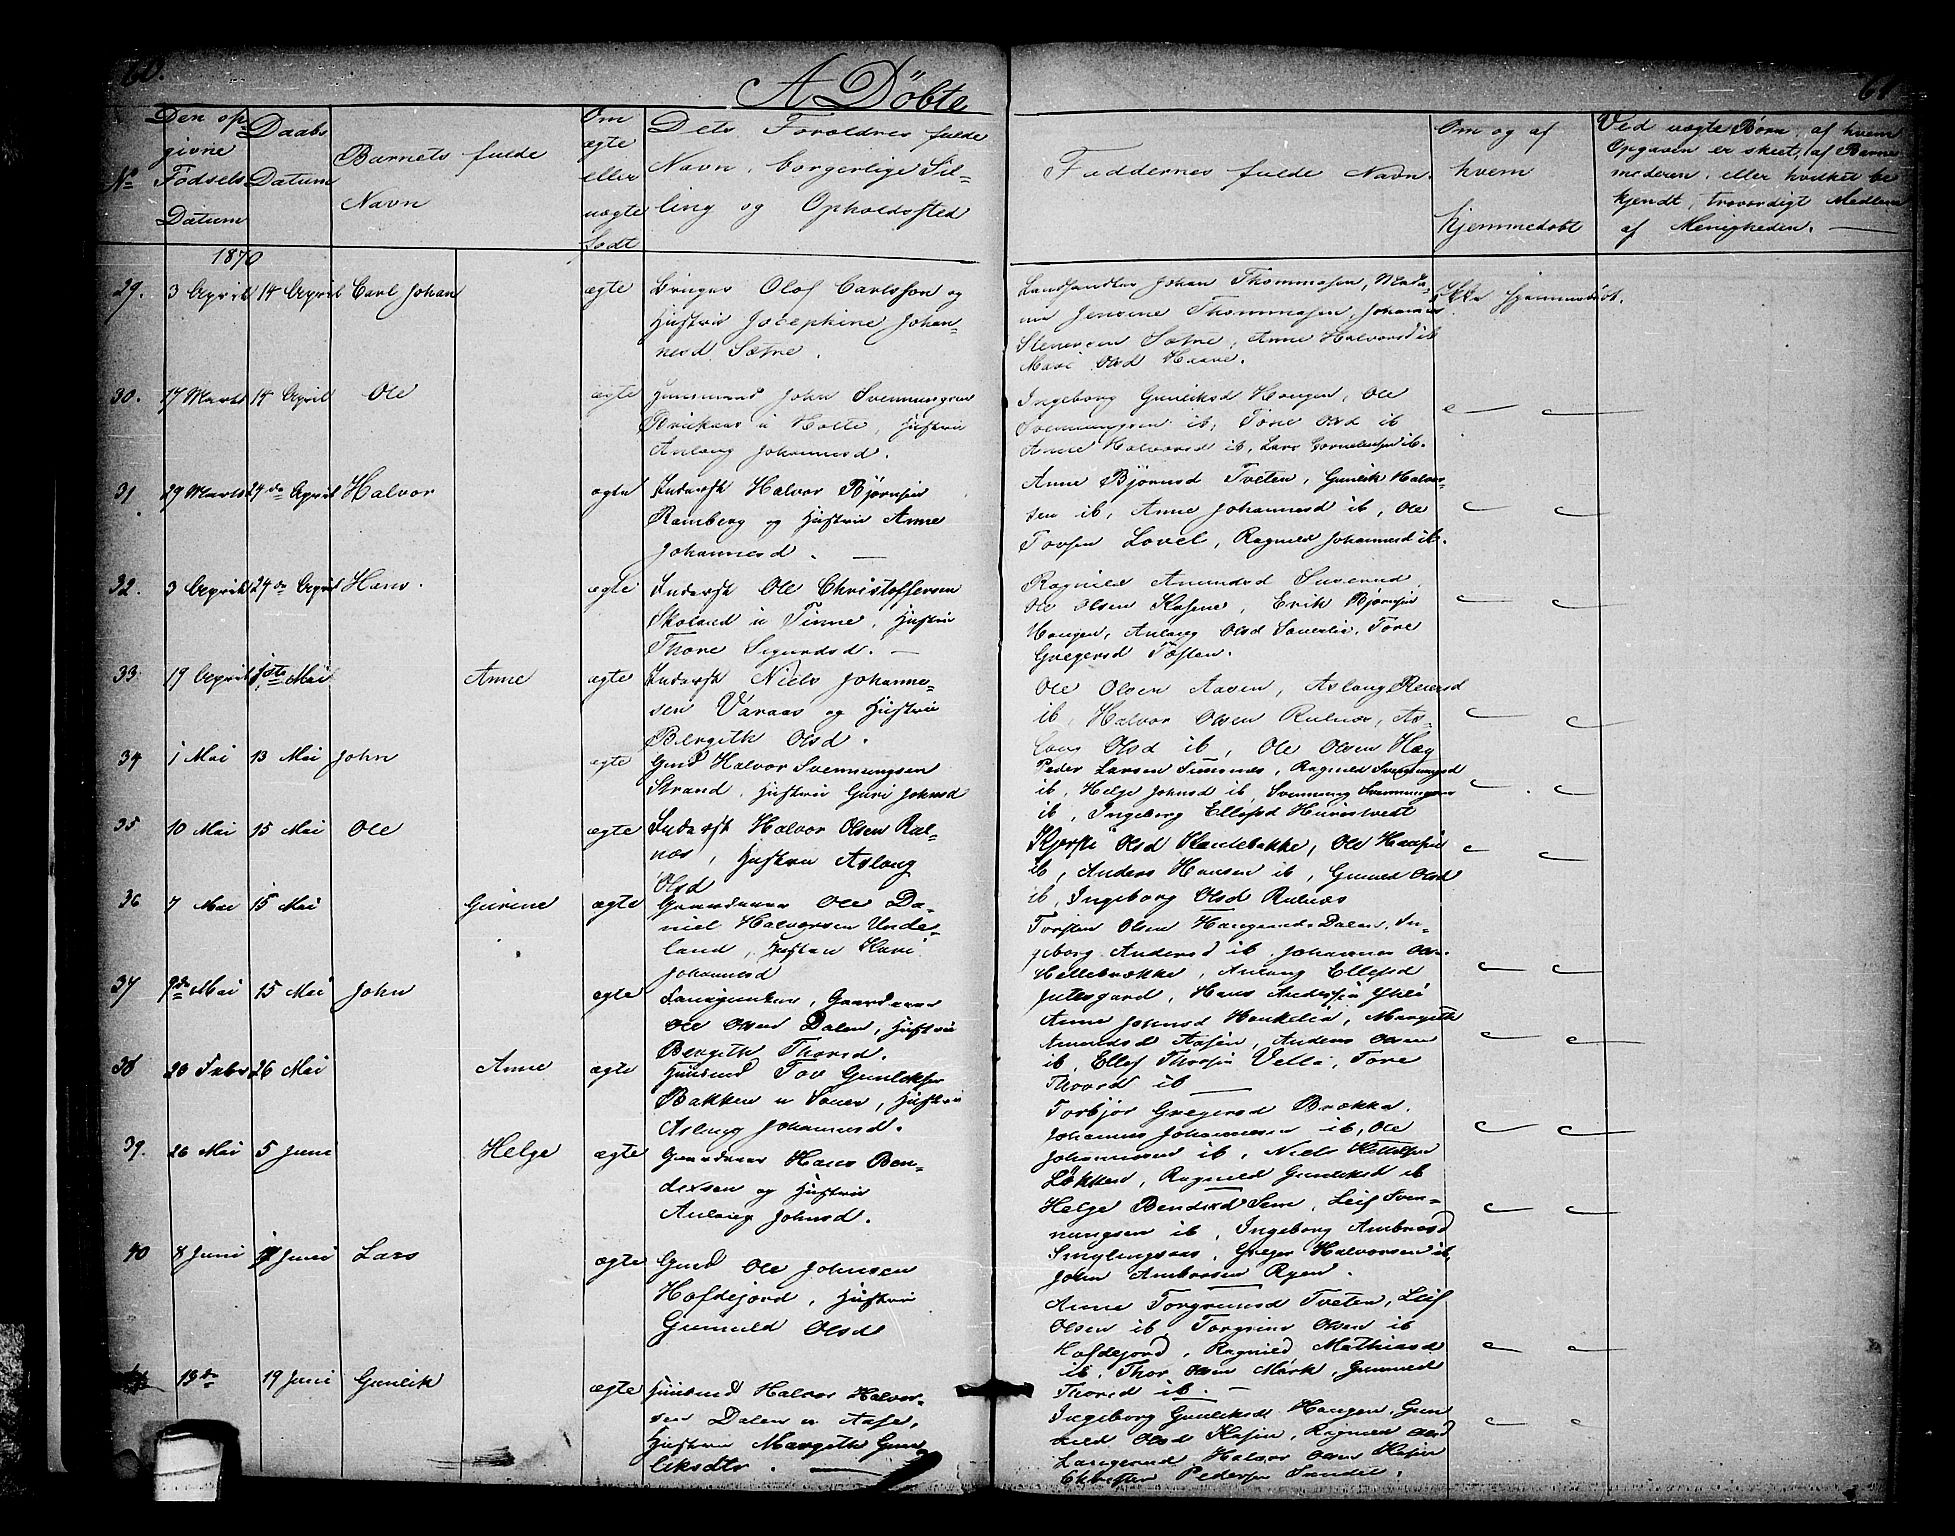 60.
A Döbte
61
No
Den op-
givne
Födsels
Datum
Daabs
Datum
Barnets fulde
Navn
Om
ægte
eller
uægte
födt
Dets Foreldres fulde
Navn, borgerlige Stil-
ling og Opholdssted
Faddernes fulde Navn.
Om og af
hvem
hjemmedöbt
Ved uægte Börn, af hvem
Opgaven er skeet, af Barne
moderen, eller hvilket be
kjendt, troværdigt Medlem
af Menigheden. —
1870
29. 3 April 14 April Carl Johan ægte Bruger Olof Carlsson og
Hustru Josephine Johan-
nesd Sætre.
Landhandler Johan Thommesen, Mada-
me Thommesen, Johannes
Stenersen Sætre, Anne Halvorsd ib
Mari Olsd Haave.
Ikke hjemmedöbt.
30. 17 Marts 14 April Ole ægte Huusmand John Svennungsen
u Holte, Hustru
Aslaug Johannesd.
Ingeborg Gunliksd Haugen, Ole
Svennungsen ib, Tone Olsd ib
Anne Halvorsd ib, Lars Corneliusen ib.
31. 29 Marts 24de April Halvor ægte Inderst Halvor Björnsen
Ramberg og Hustru Anne
Johannesd. —
Anne Björnsd Tveten, Gunlik Halvor-
sen ib, Anne Johannesd ib, Ole
Tovsen Lovel, Ragnild Johannesd ib.
32. 3 April 24de April Hans. ægte Inderst Ole Christoffersen
Skoland u Tinne, Hustru
Thore Sigurdsd. —
Ragnild Amundsd
Ole Olsen Kasene, Erik Björnsen
Haugen, Aslaug Olsd Tore
Gregersd Toften.
33. 19 April 1ste Mai Anne ægte Inderst Niels Johanne-
sen Varaas og Hustru
Bergith Olsd.
Ole Olsen Aasen, Aslaug
ib, Halvor Olsen Rulnæs, As-
laug Olsd ib, Ole Olsen Hæg
34 1 Mai 13 Mai John ægte Gmd Halvor Svennungsen
Strand, Hustru Guri Johnsd
Peder Larsen Ragnild Svennungsd
ib, Helge Johnsd ib, Svennung Svennungsen
ib, Ingeborg Ellefsd
35 10 Mai 15 Mai Ole ægte Inderst Halvor Olsen Rul-
næs, Hustru Aslaug
Olsd
Olsd Ole Hansen
ib, Anders Hansen ib, Gunild Olsd
ib, Ingeborg Olsd Rulnæs
36 7 Mai 15 Mai Gurine ægte Gaardmand Ole Da-
niel Halvorsen Unde-
land, Hustru Kari
Johannesd
Torsten Olsen Dalen, In-
geborg Andersd ib, Johannes
Hellebrække, Aslaug Ellefsd
Jutesgaard, Hans Andersen
37 9de Mai 15 Mai John ægte Gaardmand
Ole Olsen Dalen, Hustru
Bergith Thorsd.
Anne Johnsd Haukelid, Margith
Amundsd Aasen, Anders Olsen
ib, Ellef Thorsen Tore
Thorsd ib —
38 20 Febr 26 Mai Anne ægte Huusmd Tov Gunleksen
Bakken u Sauer, Hustru
Aslaug Johannesd.
Torbjör Gregersd Brække,
Johannes Johannesen ib, Ole
Johannesen ib, Niels Kittelsen
Lökken, Ragnild Gunliksd ib
39. 26 Mai 5 Juni Helge ægte Gaardmand Hans Ben-
dixsen og Hustru
Aslaug Johnsd.
Helge Bendixsd Sem, Leif Sven-
nungsen ib, Ingeborg Ambrosd
Greger Halvorsen ib,
John Ambrosen Ryen.
40 8 Juni Juni Lars ægte Gmd Ole Johnsen
Hofdejord, Hustru
Gunuld Olsd
Anne Torgrimsd Tveten, Leif
Olsen ib, Torgrim Olsen ib
Hofdejord, Ragnild Mathiasd
ib, Thor Olsen Mörk, Gunnild
Thorsd ib. —
13de 19 Juni Gunlik ægte Huusmd Halvor Halvor-
sen Dalen u Aase,
Hustru Margith Gun-
liksdtr. —
Ingeborg Gunliksd Haugen, Gun
hild Olsd Kasin, Ragnild Olsd
Langerud, Halvor Olsen Kasin
Christen Pedersen